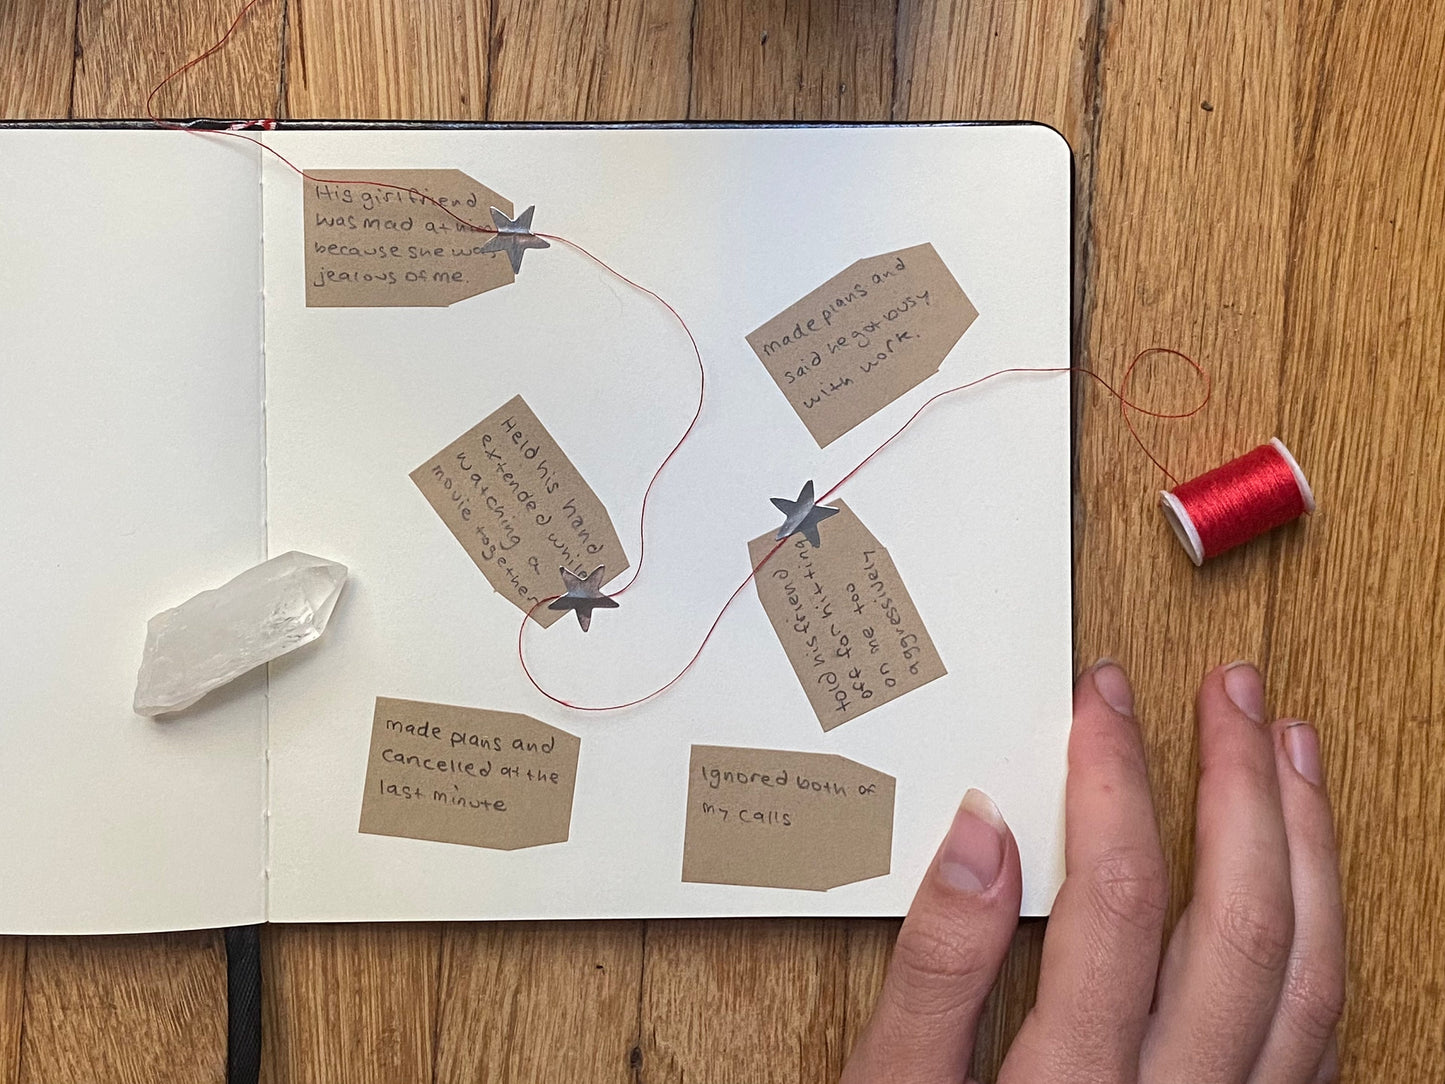 His girlfriend
was mad at him
because she was
jealous of me.
made plans and
said he got busy
with work.
Held his hand
extended while
watching a
movie together
told his friend
off for hitting
on me too
aggressively
made plans and
cancelled at the
last minute
Ignored both of
my calls